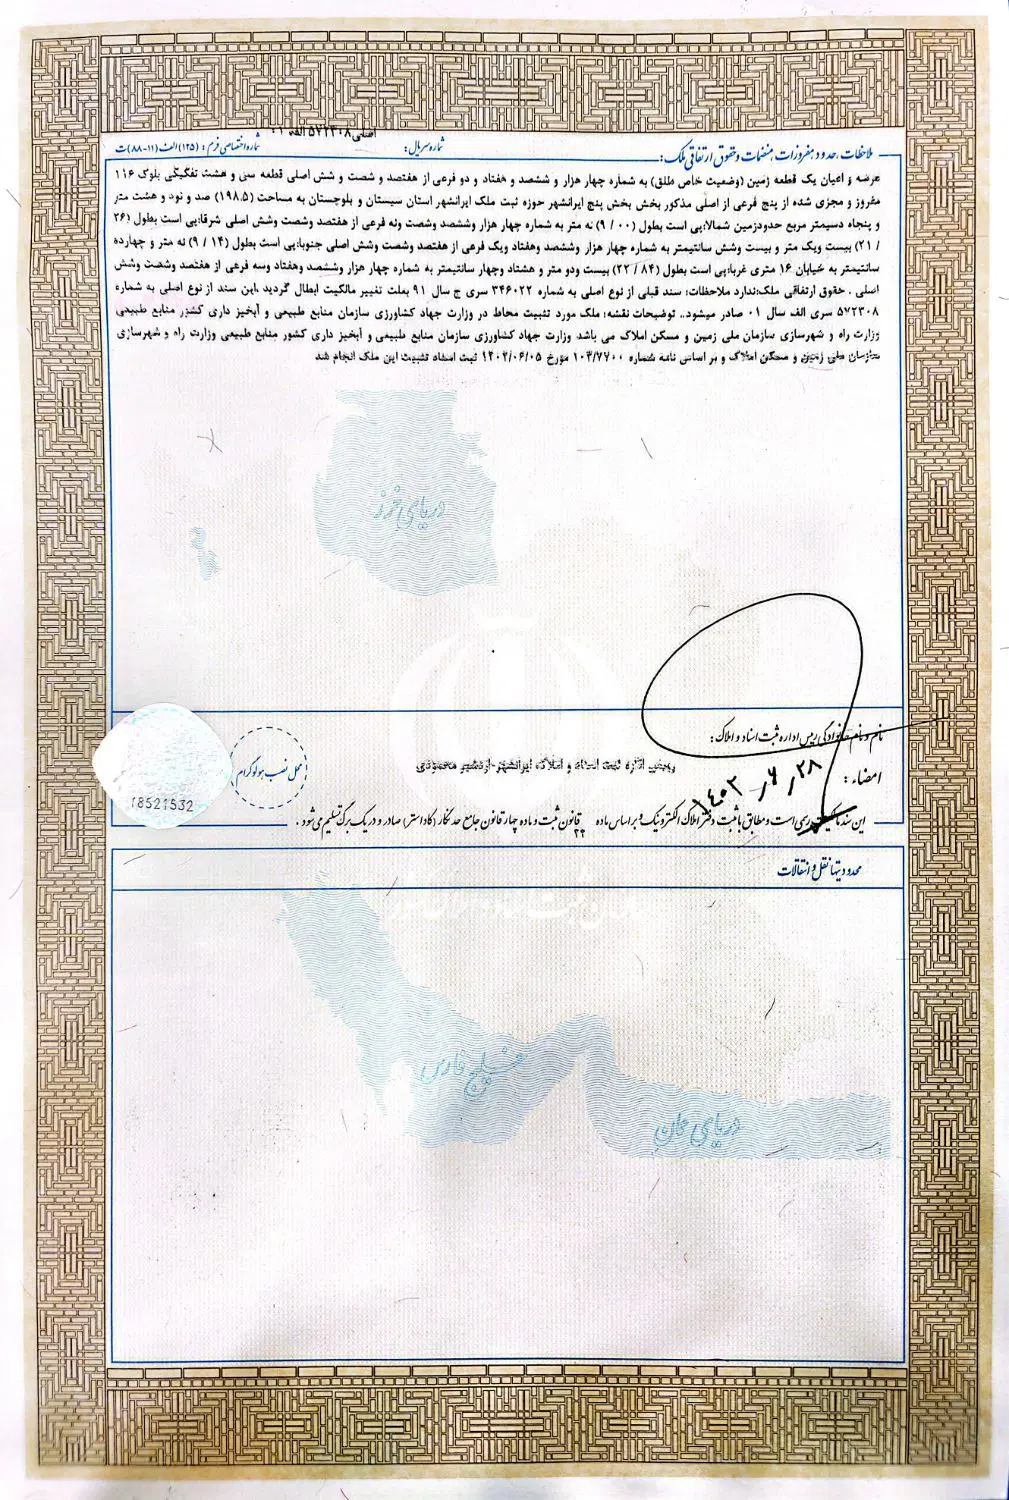 اصلی ۵۷۲۳۰۸ الف ۰۱
ملاحظات، حدود، مفروزات، منضمات و حقوق ارتفاقی ملک: شماره سریال: شماره اختصاصی فرم: (۱۲۵) الف (۱۱-۸۸) ت
عرصه و اعیان یک قطعه زمین (وضعیت خاص طلق) به شماره چهار هزار و ششصد و هفتاد و دو فرعی از هفتصد و شصت و شش اصلی قطعه سی و هشت تفکیکی بلوک ۱۱۶
مفروز و مجزی شده از پنج فرعی از اصلی مذکور بخش بخش پنج ایرانشهر حوزه ثبت ملک ایرانشهر استان سیستان و بلوچستان به مساحت (۱۹۸.۵) صد و نود و هشت متر
و پنجاه دسیمتر مربع حدودزمین شمالا:پی است بطول (۰۰ / ۹) نه متر به شماره چهار هزار وششصد وشصت ونه فرعی از هفتصد وشصت وشش اصلی شرقا:پی است بطول (۲۶
/ ۲۱) بیست ویک متر و بیست وشش سانتیمتر به شماره چهار هزار وششصد وهفتاد ویک فرعی از هفتصد وشصت وشش اصلی جنوبا:پی است بطول (۱۴ / ۹) نه متر و چهارده
سانتیمتر به خیابان ۱۶ متری غربا:پی است بطول (۸۴ / ۲۲) بیست ودو متر و هشتاد وچهار سانتیمتر به شماره چهار هزار وششصد وهفتاد وسه فرعی از هفتصد وشصت وشش
اصلی . حقوق ارتفاقی ملک:ندارد ملاحظات: سند قبلی از نوع اصلی به شماره ۳۴۶۰۲۲ سری ج سال ۹۱ بعلت تغییر مالکیت ابطال گردید .این سند از نوع اصلی به شماره
۵۷۲۳۰۸ سری الف سال ۰۱ صادر میشود.. توضیحات نقشه: ملک مورد تثبیت محاط در وزارت جهاد کشاورزی سازمان منابع طبیعی و آبخیز داری کشور منابع طبیعی
وزارت راه و شهرسازی سازمان ملی زمین و مسکن املاک می باشد وزارت جهاد کشاورزی سازمان منابع طبیعی و آبخیز داری کشور منابع طبیعی وزارت راه و شهرسازی
سازمان ملی زمین و مسکن املاک و بر اساس نامه شماره ۱۰۳/۷۷۰۰ مورخ ۱۴۰۳/۰۶/۰۵ ثبت اسناد تثبیت این ملک انجام شد
دریای خزر
نام و نام خانوادگی رییس اداره ثبت اسناد و املاک:
رییس اداره ثبت اسناد و املاک ایرانشهر-اردشیر محمودی
امضاء:
۱۴۰۳/۶/۲۸
محل نصب هولوگرام
18521532
این سند مالکیت رسمی است و مطابق با ثبت دفتر املاک الکترونیک و بر اساس ماده ۲۲ قانون ثبت و ماده چهار قانون جامع حدنگار (کاداستر) صادر و در یک برگ تسلیم می شود .
محدودیتها نقل و انتقالات
خلیج فارس
دریای عمان